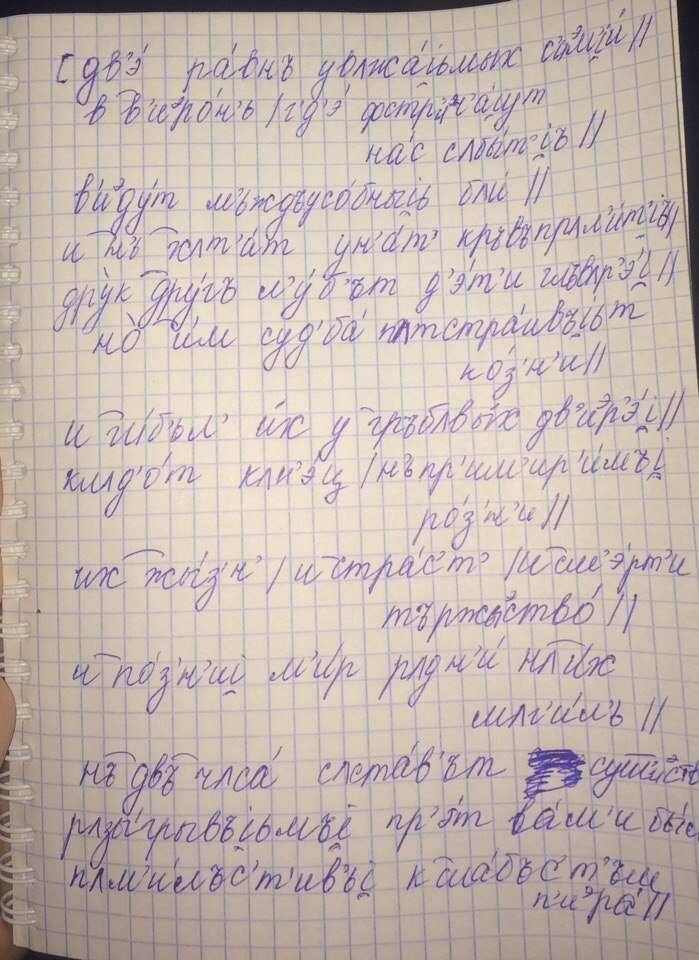 [ дв'э́ ра́внъ увлжа́іьмых с'иэм'и́ //
в в'иэро́н'ь / г'д'э́ фстр'иэч'а́іут
на́с слбы́т'іь //
в'иэду́т м'ьждъусо́бныіь бли́ //
и нъ хлт'а́т ун'а́т' кръвъпрлл'и́т'іь //
дру́к дру́гъ л'у́б'ът д'э́т'и глъвлр'э́і //
но̀ и́м суд'ба́ плтстра́ивъіьт
ко́з'н'и //
и г'и́б'ьл' и́х у гръблвы́х дв'иэр'э́і //
клад'о́т клн'э́ц / нъпр'им'ир'и́мъі
ро́з'н'и //
их жы́з'н' / и стра́с'т' / и см'э́рт'и
тържыэство́ //
и по́з'н'иі м'и́р рлдн'и́ нл и́х
млг'и́лъ //
нъ двъ члса́ слста́в'ът сущиэств
рлзы́грывъіьмъі пр'э́т ва́м'и бы́с
плм'и́лъс'т'ивъі к сла́бъс'т'ьм
п'иэра́ //